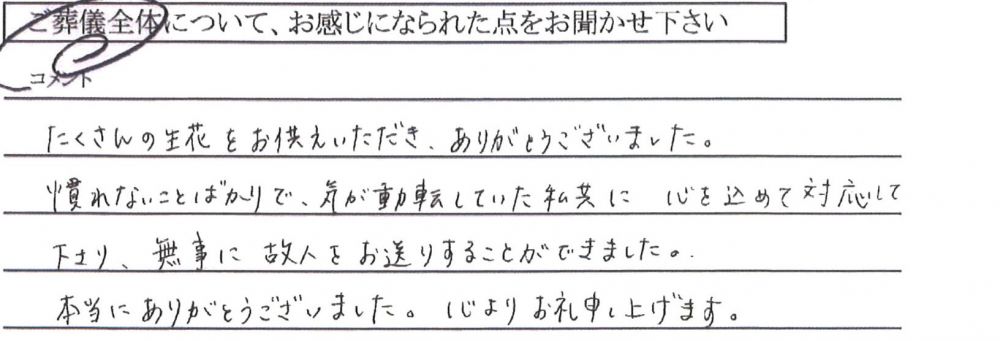 ご葬儀全体について、お感じになられた点をお聞かせ下さい
コメント
たくさんの生花をお供えいただき、ありがとうございました。
慣れないことばかりで、気が動転していた私共に 心を込めて対応して
下さり、無事に故人をお送りすることができました。
本当にありがとうございました。心よりお礼申し上げます。